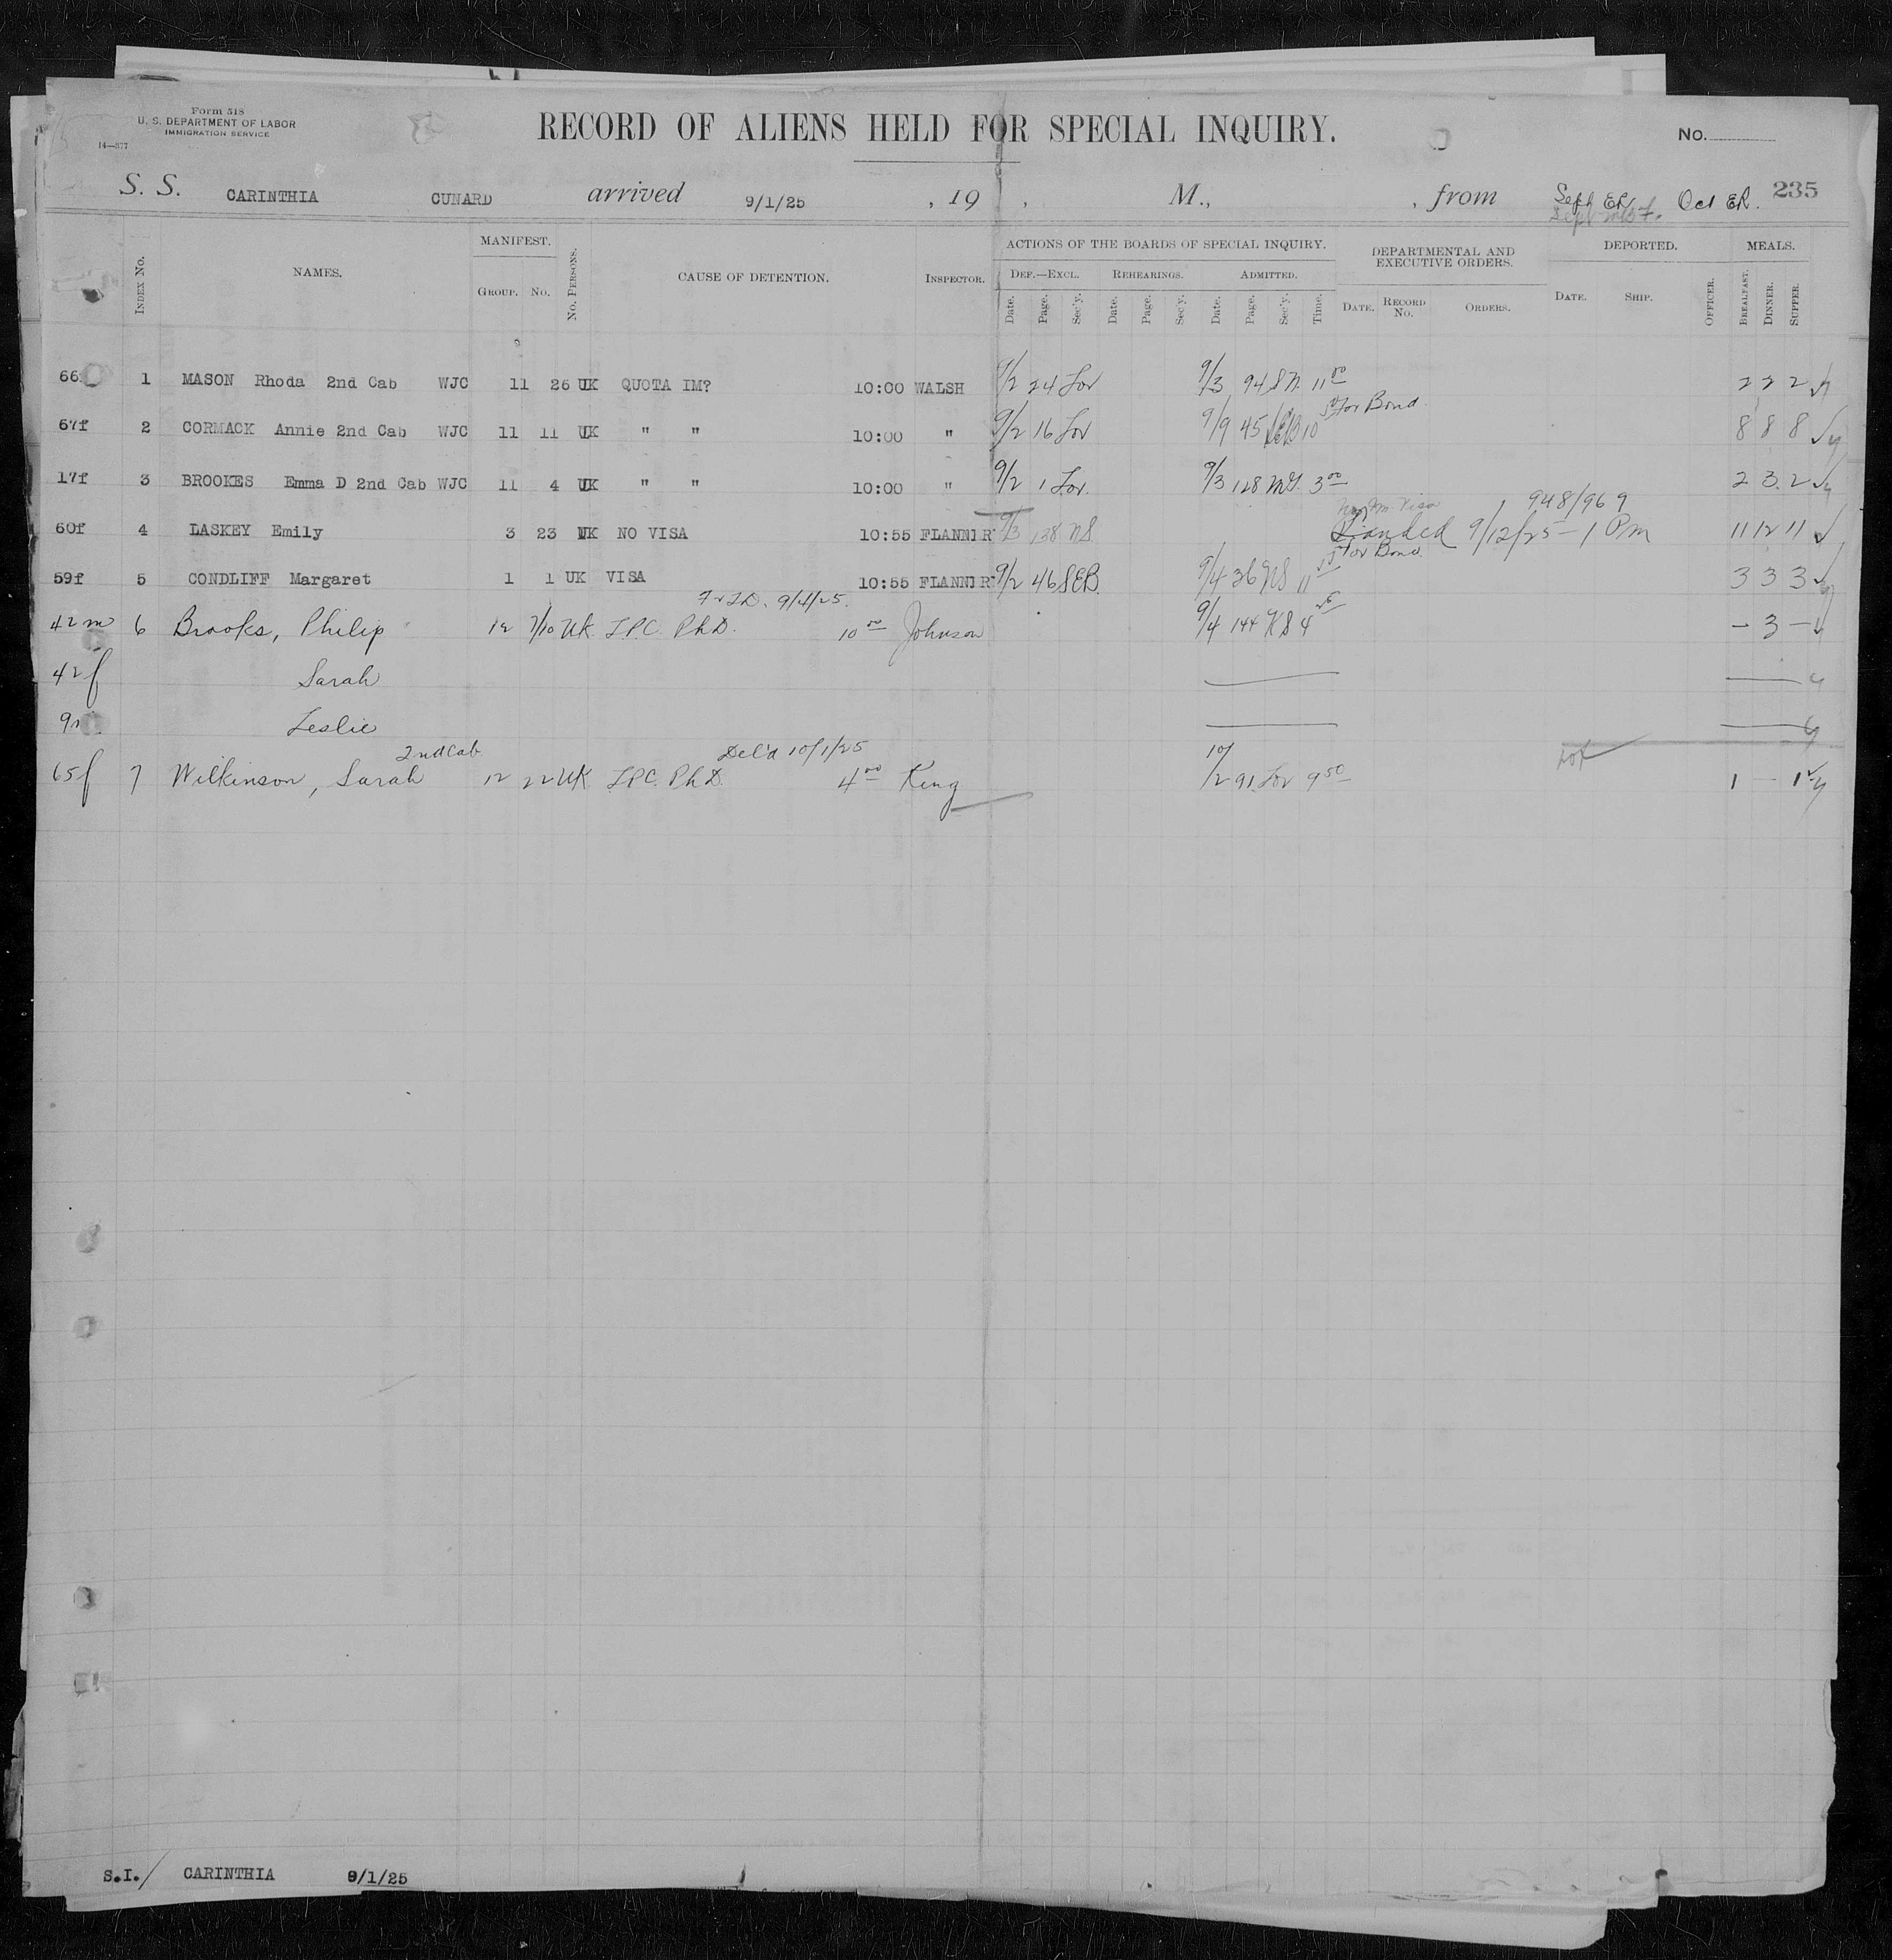 Form 518
U. S. DEPARTMENT OF LABOR
IMMIGRATION SERVICE
14—377
RECORD OF ALIENS HELD FOR SPECIAL INQUIRY.
No.
S. S. CARINTHIA CUNARD arrived 9/1/25 , 19 , M., , from Sept ER. Oct ER. 235
INDEX No.
NAMES.
MANIFEST.
GROUP. No.
No. PERSONS.
CAUSE OF DETENTION.
INSPECTOR.
ACTIONS OF THE BOARDS OF SPECIAL INQUIRY.
DEF.—EXCL. REHEARINGS. ADMITTED.
Date. Page. Sec'y. Date. Page. Sec'y. Date. Page. Sec'y. Time.
DEPARTMENTAL AND EXECUTIVE ORDERS.
DATE. RECORD No. ORDERS.
DEPORTED.
DATE. SHIP. OFFICER.
MEALS.
BREAKFAST. DINNER. SUPPER.
66 1 MASON Rhoda 2nd Cab WJC 11 26 UK QUOTA IM? 10:00 WALSH 9/2 24 Lov 9/3 94 SM 11 00 2 2 2
for Bond.
67f 2 CORMACK Annie 2nd Cab WJC 11 11 UK " " 10:00 " 9/2 16 Lov 9/9 45 SEB 10 8 8 8
17f 3 BROOKES Emma D 2nd Cab WJC 11 4 UK " " 10:00 " 9/2 1 Lov. 9/3 128 3 00 2 3 2
Visa 948/969
60f 4 LASKEY Emily 3 23 UK NO VISA 10:55 FLANNER 9/3 138 NS Landed 9/12/25 – 1 Pm 11 12 11
for Bond
59f 5 CONDLIFF Margaret 1 1 UK VISA 10:55 FLANNER 9/2 46 SEB. 9/4 36 NS 11 3 3 3
9/4/25.
42m 6 Brooks, Philip 12 7/10 UK. LPC. PhD. 10 00 Johnson 9/4 144 KS 4 – 3 –
42f Sarah
9 Leslie
2nd Cab Del'd 10/1/25
65f 7 Wilkinson, Sarah 12 22 UK. LPC. PhD. 4 00 King 10/2 91 Lov 9 50 1 – 1
S.I./ CARINTHIA 9/1/25